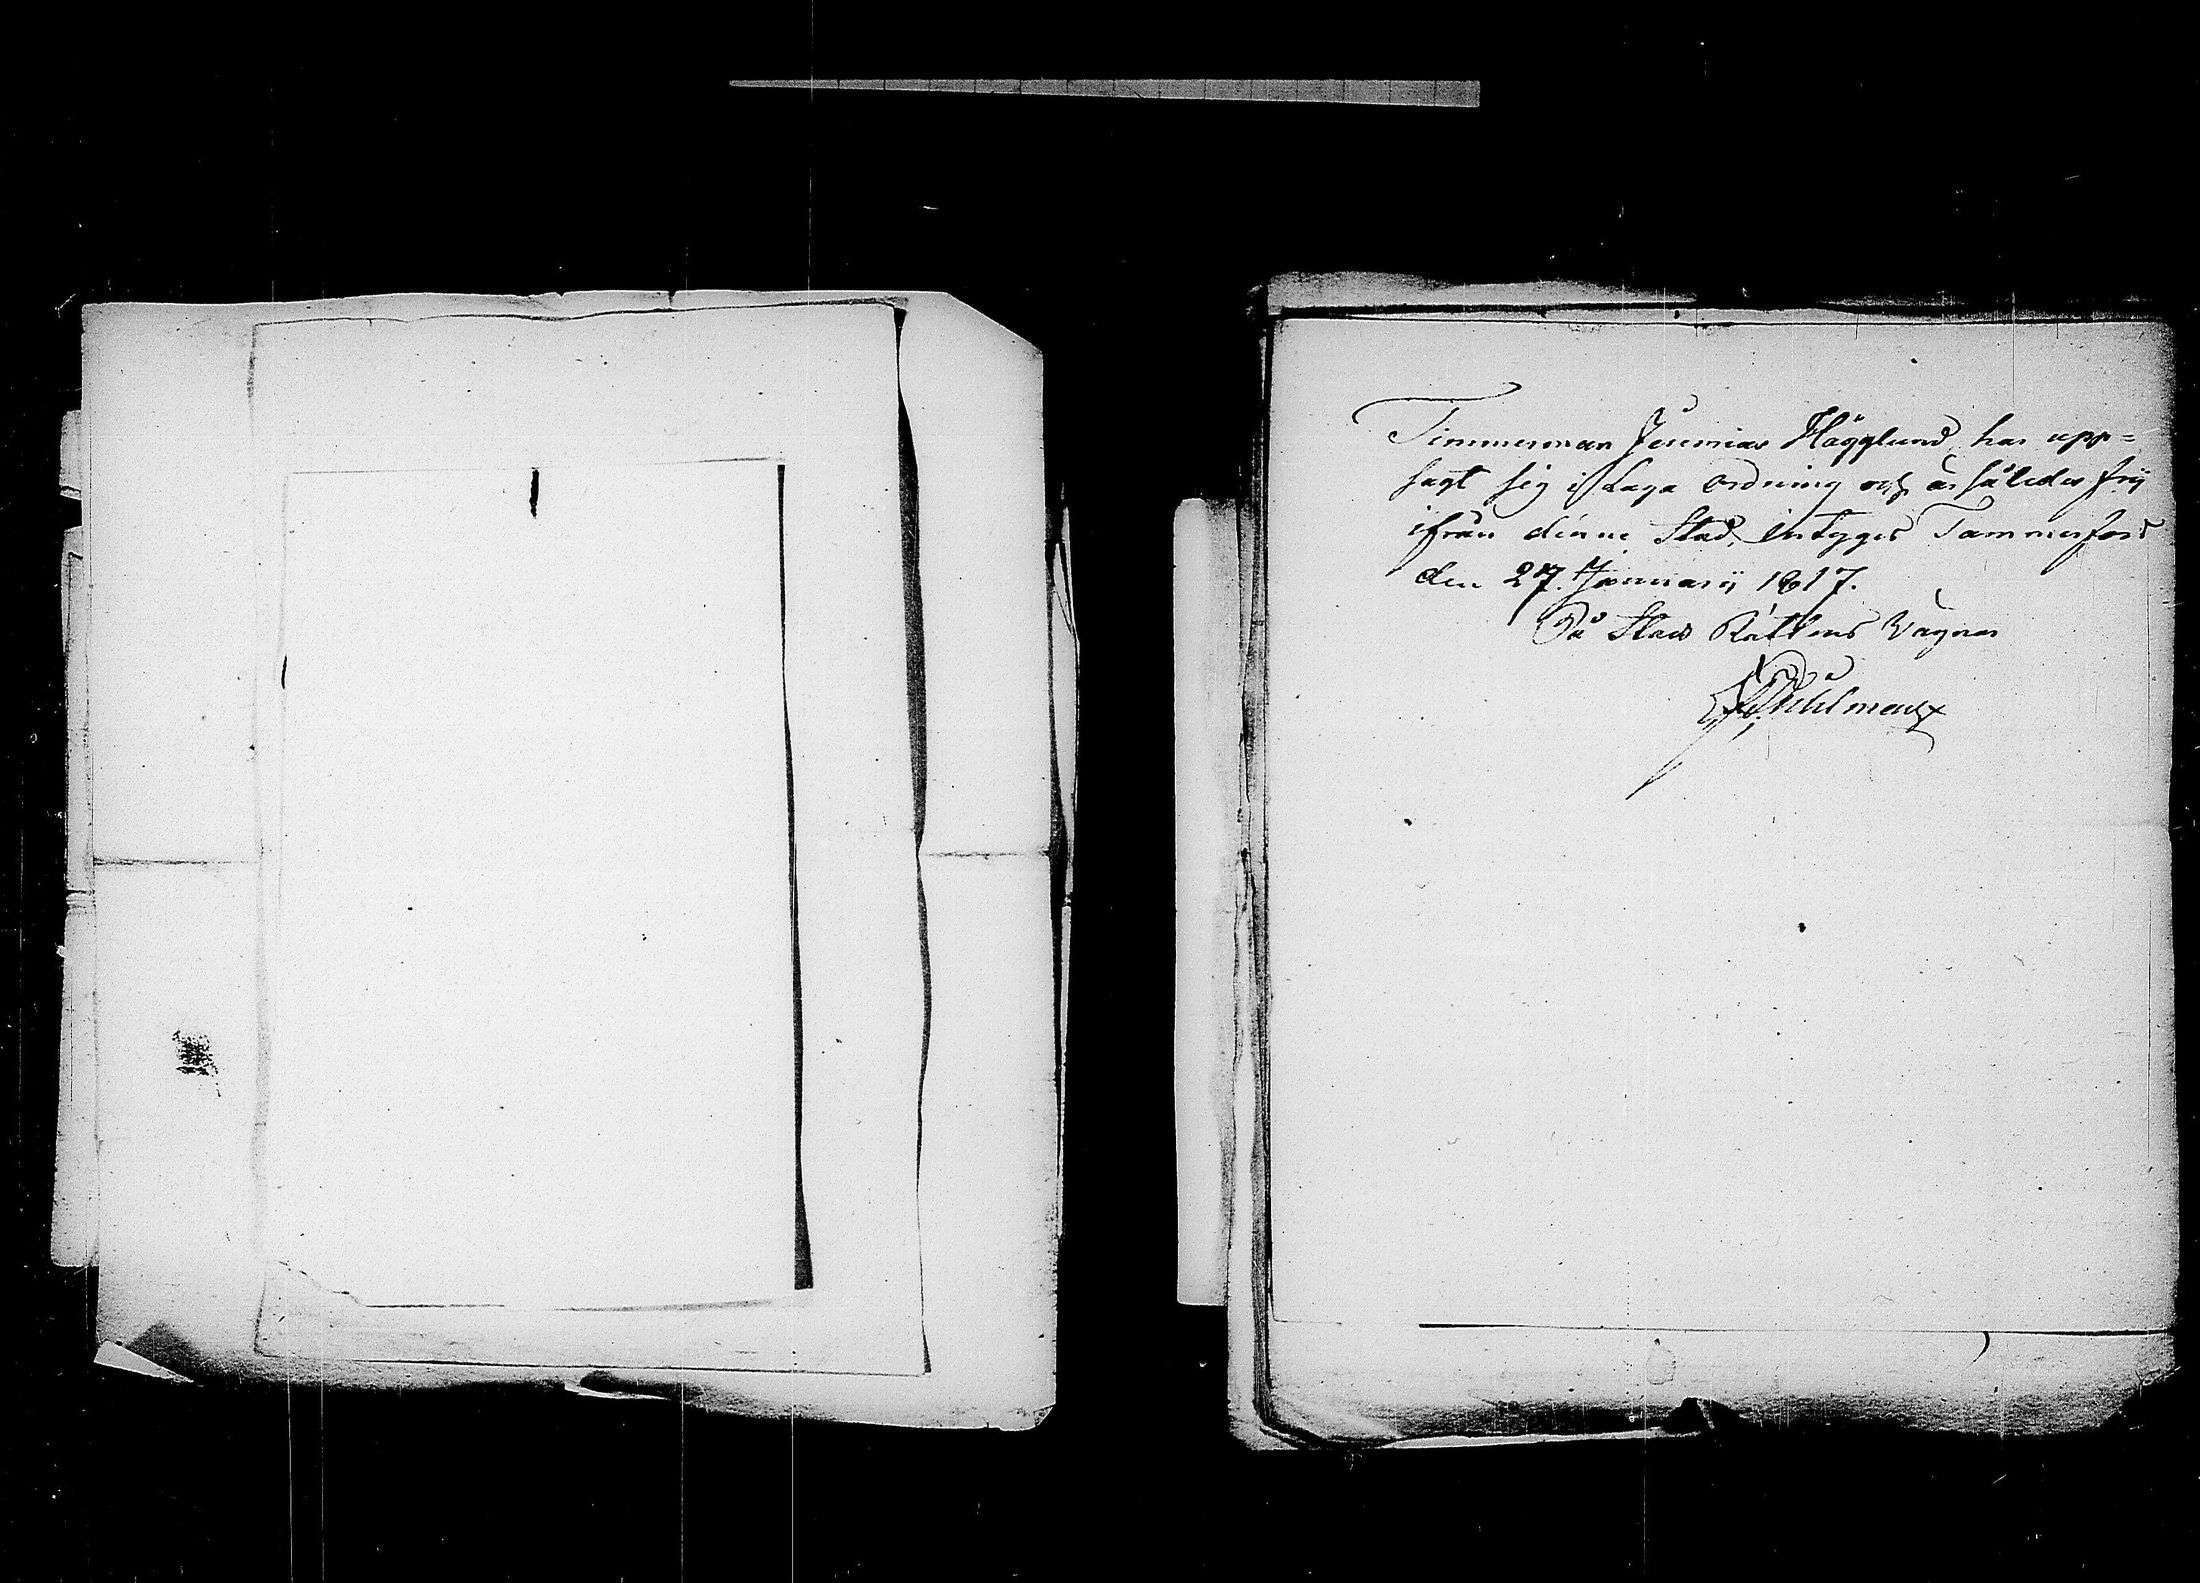 Timmerman Jeremias Hägglund har upp=
sagt sig i Laga Ordning och är således frij
ifrån denne Stad, intygas Tammerfors
den 27. Januarij 1817.
På Stads Rättens Vägnar